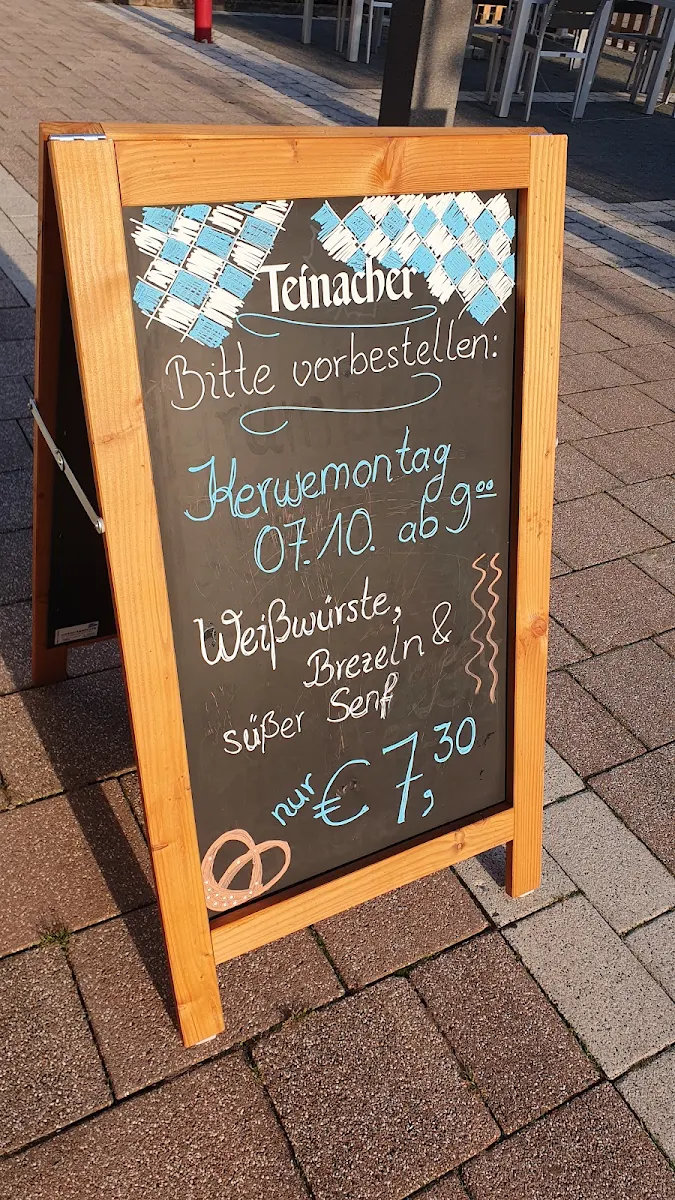 Teinacher
Bitte vorbestellen:
Kerwemontag
07.10. ab 9⁰⁰
Weißwürste,
Brezeln &
süßer Senf
nur € 7,30